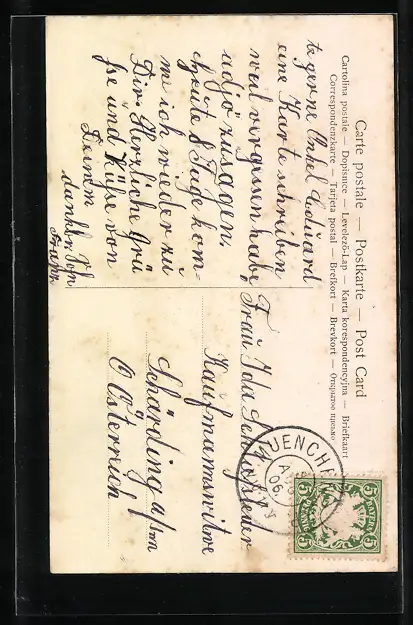 Carte postale — Postkarte — Post Card
Cartolina postale — Dopisnice — Levelező-Lap — Karta korespondencyjna — Briefkaart
Correspondenzkarte — Tarjeta postal — Brefkort — Brevkort — Открытое письмо
te gerne Onkel Eduard
eine Karte schreiben
weil vergessen habe,
adjö zu sagen.
Heute 8 Tage kom=
me ich wieder zu
Dir. Herzliche Grü
ße und Küsse von
Deinem
dankbr.
Frau Ida
Kaufmannswitwe
Schärding a/Inn
O Österreich
MUENCHEN
06.
5 BAYERN 5